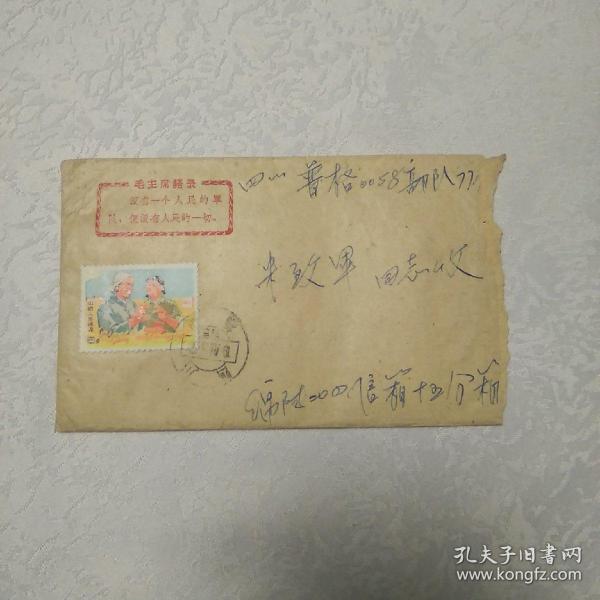 毛主席语录
没有一个人民的军
队，便没有人民的一切。
四川 普格0058部队77
米致军 同志收
绵阳二〇四信箱十五分箱
8分
孔夫子旧书网
www.kongfz.com